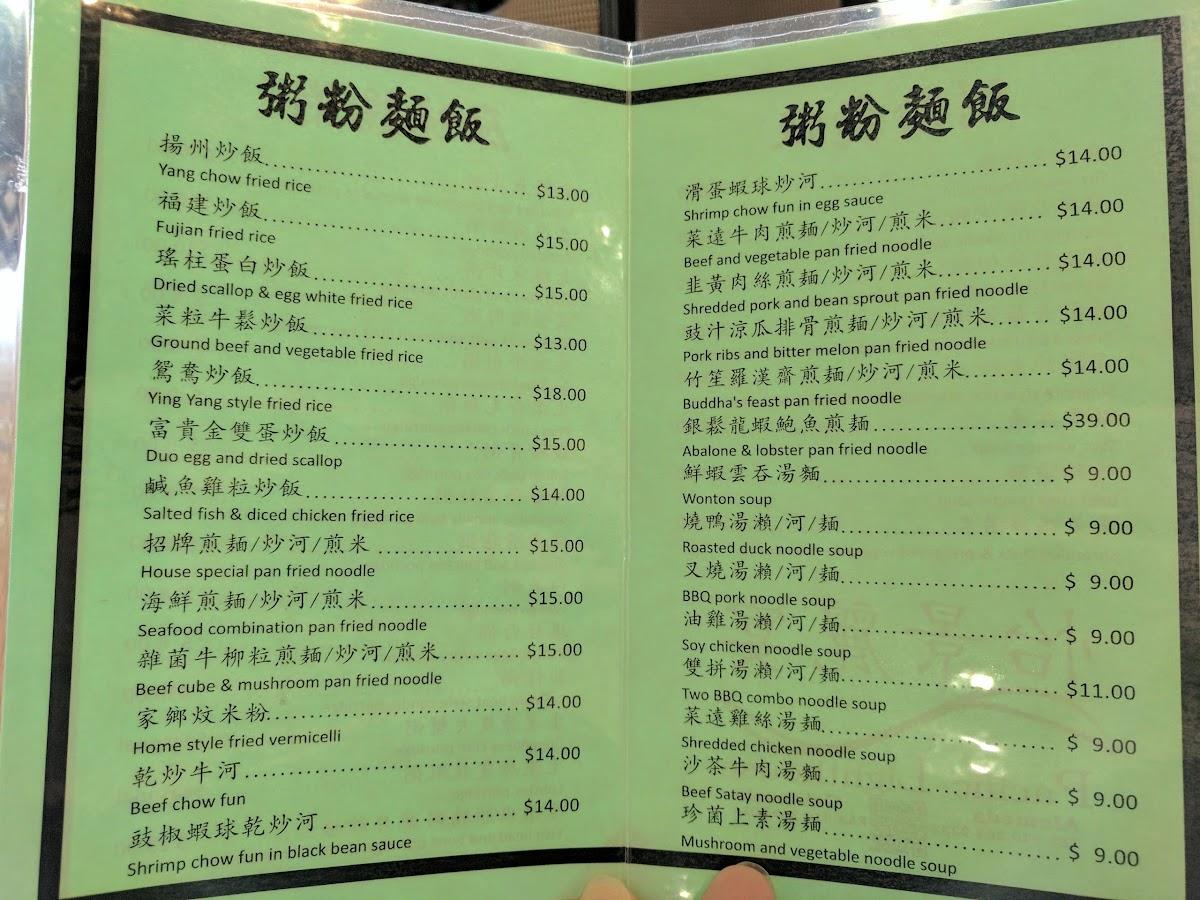 粥粉麵飯
揚州炒飯 $13.00
Yang chow fried rice
福建炒飯 $15.00
Fujian fried rice
瑤柱蛋白炒飯 $15.00
Dried scallop & egg white fried rice
菜粒牛鬆炒飯 $13.00
Ground beef and vegetable fried rice
鴛鴦炒飯 $18.00
Ying Yang style fried rice
富貴金雙蛋炒飯 $15.00
Duo egg and dried scallop
鹹魚雞粒炒飯 $14.00
Salted fish & diced chicken fried rice
招牌煎麵/炒河/煎米 $15.00
House special pan fried noodle
海鮮煎麵/炒河/煎米 $15.00
Seafood combination pan fried noodle
雜菌牛柳粒煎麵/炒河/煎米 $15.00
Beef cube & mushroom pan fried noodle
家鄉炆米粉 $14.00
Home style fried vermicelli
乾炒牛河 $14.00
Beef chow fun
豉椒蝦球乾炒河 $14.00
Shrimp chow fun in black bean sauce
粥粉麵飯
滑蛋蝦球炒河 $14.00
Shrimp chow fun in egg sauce
菜遠牛肉煎麵/炒河/煎米 $14.00
Beef and vegetable pan fried noodle
韭黃肉絲煎麵/炒河/煎米 $14.00
Shredded pork and bean sprout pan fried noodle
豉汁涼瓜排骨煎麵/炒河/煎米 $14.00
Pork ribs and bitter melon pan fried noodle
竹笙羅漢齋煎麵/炒河/煎米 $14.00
Buddha's feast pan fried noodle
銀鬆龍蝦鮑魚煎麵 $39.00
Abalone & lobster pan fried noodle
鮮蝦雲吞湯麵 $ 9.00
Wonton soup
燒鴨湯瀨/河/麵 $ 9.00
Roasted duck noodle soup
叉燒湯瀨/河/麵 $ 9.00
BBQ pork noodle soup
油雞湯瀨/河/麵 $ 9.00
Soy chicken noodle soup
雙拼湯瀨/河/麵 $11.00
Two BBQ combo noodle soup
菜遠雞絲湯麵 $ 9.00
Shredded chicken noodle soup
沙茶牛肉湯麵 $ 9.00
Beef Satay noodle soup
珍菌上素湯麵 $ 9.00
Mushroom and vegetable noodle soup